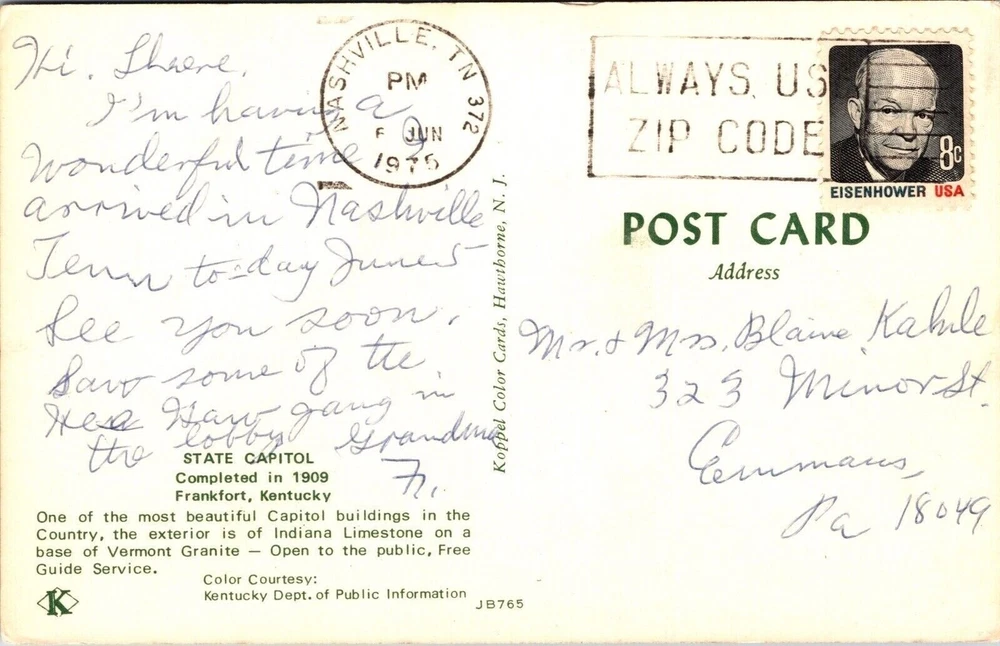 Hi. there,
I'm having a
wonderful time
arrived in Nashville
Tenn to-day June 5
See you soon.
Saw some of the
Hee Haw gang in
the lobby Grandma
Fr.
NASHVILLE, TN 372
PM
JUN
1975
ALWAYS USE
ZIP CODE
8c
EISENHOWER USA
POST CARD
Address
Mr. & Mrs. Blaine
323 Minor St.
Emmaus,
Pa 18049
Koppel Color Cards, Hawthorne, N. J.
STATE CAPITOL
Completed in 1909
Frankfort, Kentucky
One of the most beautiful Capitol buildings in the
Country, the exterior is of Indiana Limestone on a
base of Vermont Granite — Open to the public, Free
Guide Service.
Color Courtesy:
Kentucky Dept. of Public Information
K
JB765